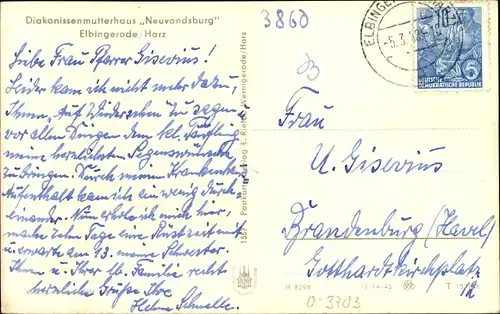 Diakonissenmutterhaus „Neuvandsburg"
Elbingerode/Harz
3860
Liebe Frau Pfarrer Gisevius!
Leider kam ich nicht mehr dazu,
Ihnen „Auf Wiedersehen" zu sagen,
vor allen Dingen dem kl. Täufling
meine herzlichsten Segenswünsche
zu bringen. Durch meinen Krankenhaus
Aufenthalt kam ich ein wenig durch-
einander. Nun erhole ich mich hier,
mache zehn Tage eine Rüstzeit mit
u. erwarte am 13. meine Schwester.
Ihnen u. Ihrer lb. Familie recht
herzliche Grüße Ihre
Helene Schnelle.
Postkartenverlag E. Riehn, Wernigerode/Harz
ELBINGERODE (HARZ)
-5.3.
DEUTSCHE
DEMOKRATISCHE REPUBLIK
Frau
U. Gisevius
Brandenburg (Havel)
Gotthardtkirchplatz
H 8298
0-3703